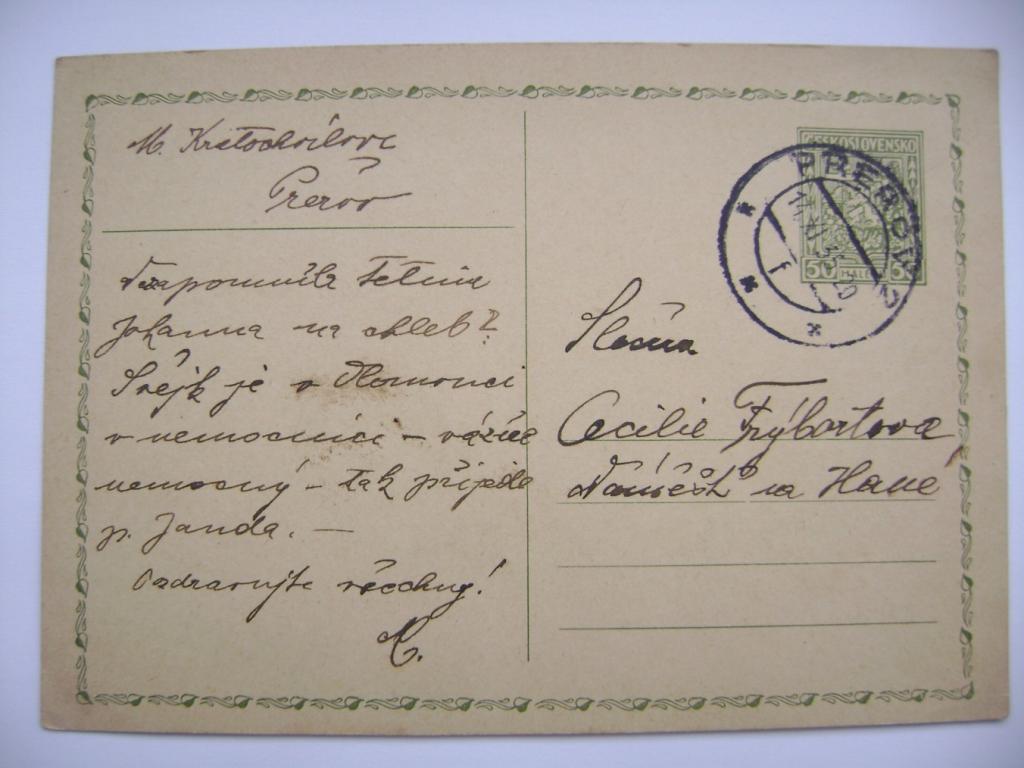 M. Kratochvílova
Přerov
Nezapomněla Tetina
Johanna na chleb?
Švejk je v Olomouci
v nemocnici – vážně
nemocný – tak přijede
p. Janda. —
Ozdravujte všechny!
M.
ČESKOSLOVENSKO
50 HALÉŘŮ 50
PŘEROV 2
Slečna
Cecilie Frýbortova
Náměšť na Hane